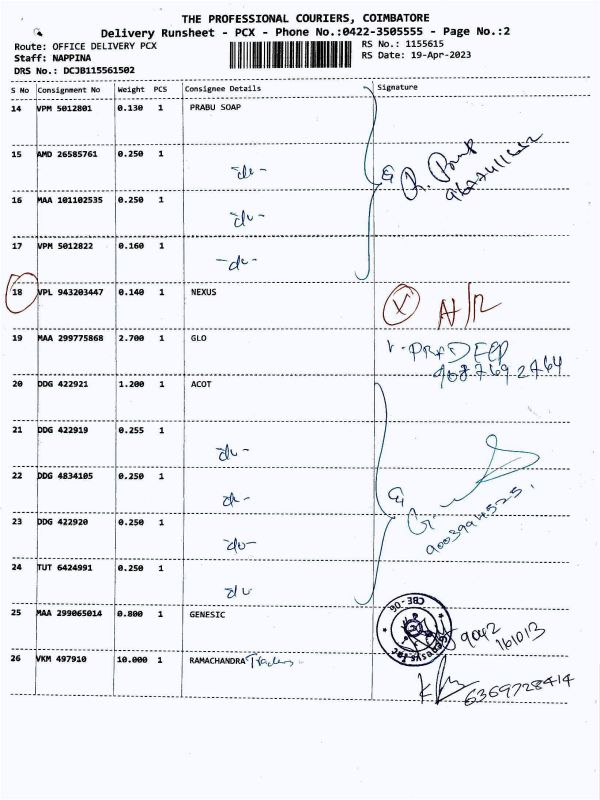 THE PROFESSIONAL COURIERS, COIMBATORE
Delivery Runsheet - PCX - Phone No.:0422-3505555 - Page No.:2
Route: OFFICE DELIVERY PCX
RS No.: 1155615
Staff: NAPPINA
RS Date: 19-Apr-2023
DRS No.: DCJB115561502
S No Consignment No Weight PCS Consignee Details Signature
14 VPM 5012801 0.130 1 PRABU SOAP
15 AMD 26585761 0.250 1 -do-
16 MAA 101102535 0.250 1 -do-
17 VPM 5012822 0.160 1 -do-
18 VPL 943203447 0.140 1 NEXUS X A/R
19 MAA 299775868 2.700 1 GLO PRADEEP
9087692764
20 DDG 422921 1.200 1 ACOT
21 DDG 422919 0.255 1 do-
22 DDG 4834105 0.250 1 do-
23 DDG 422920 0.250 1 -do-
24 TUT 6424991 0.250 1 do
CBE-06
25 MAA 299065014 0.800 1 GENESIC 9042
161013
26 VKM 497910 10.000 1 RAMACHANDRA Traders
6369728414